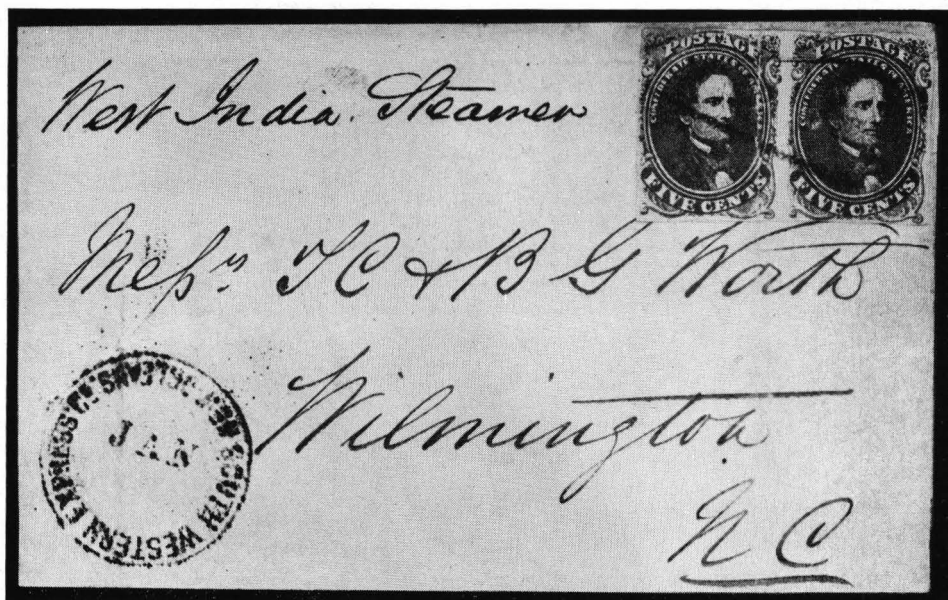 West India Steamer
POSTAGE
CONFEDERATE STATES OF AMERICA
FIVE CENTS
POSTAGE
CONFEDERATE STATES OF AMERICA
FIVE CENTS
Messrs T C & B G Worth
Wilmington
N C
SOUTH WESTERN EXPRESS CO. NEW ORLEANS
JAN